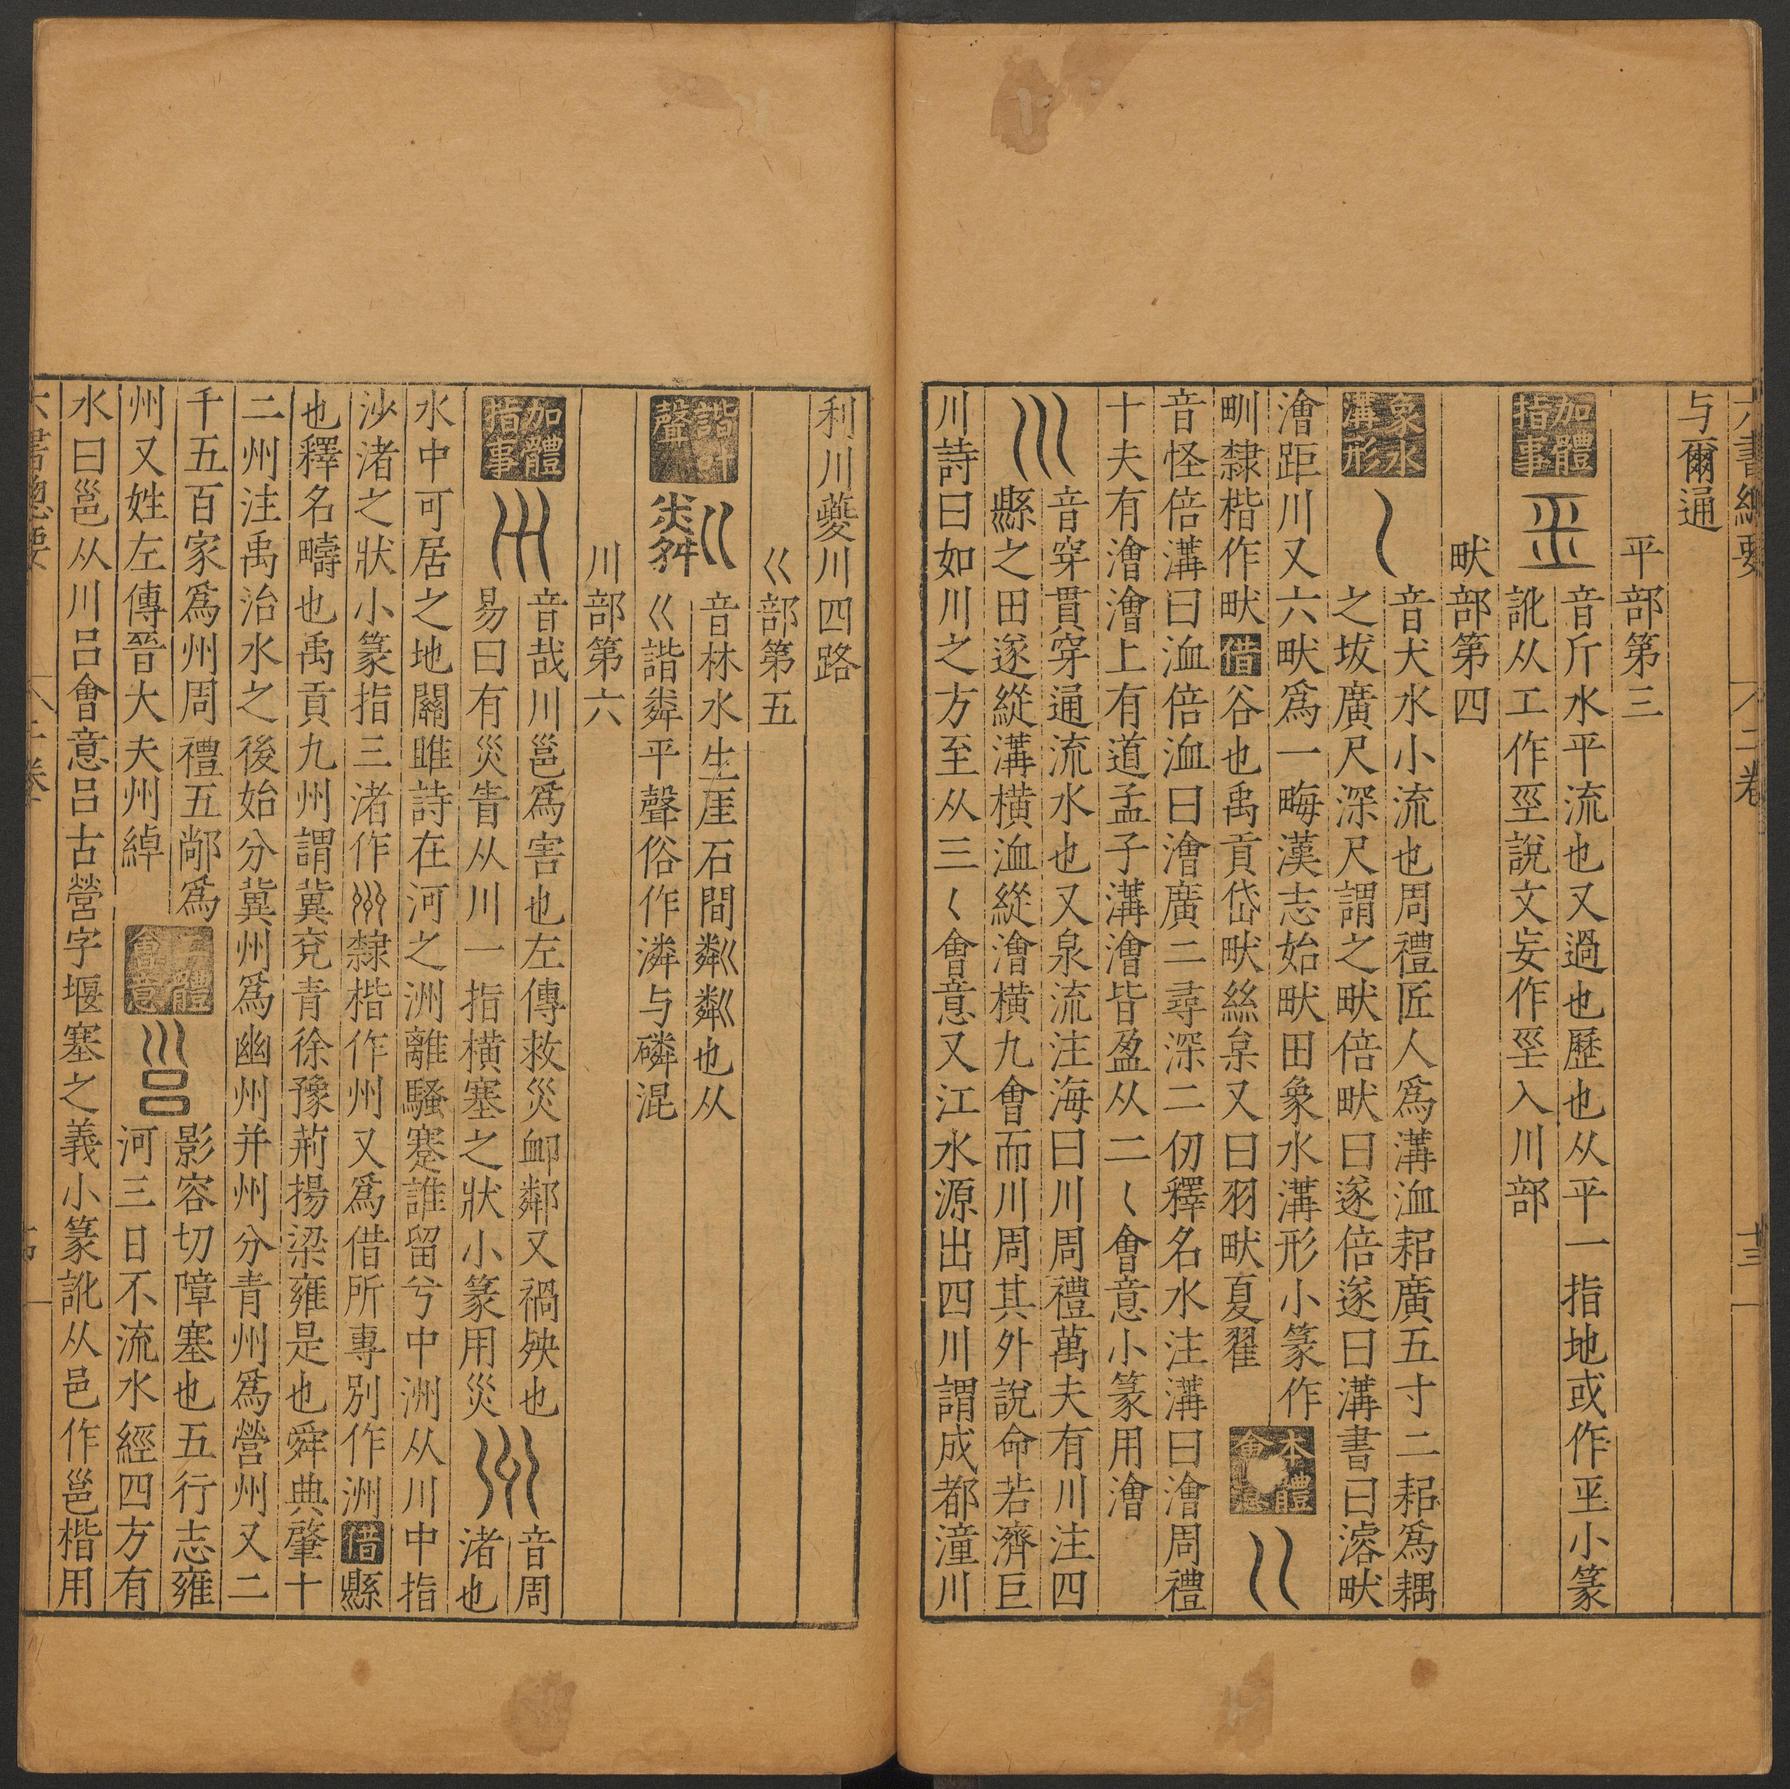 六書總要 二卷 廿三
与爾通
平部第三
加體指事
音斤水平流也又過也歷也从平一指地或作坙小篆
訛从工作坙說文妄作坙入川部
畎部第四
象水溝形
音犬水小流也周禮匠人爲溝洫耜廣五寸二耜爲耦
之坺廣尺深尺謂之畎倍畎曰遂倍遂曰溝書曰濬畎
澮距川又六畎爲一畮漢志始畎田象水溝形小篆作
甽隸楷作畎借谷也禹貢岱畎絲枲又曰羽畎夏翟
本體會意
音怪倍溝曰洫倍洫曰澮廣二尋深二仞釋名水注溝曰澮周禮
十夫有澮澮上有道孟子溝澮皆盈从二〱會意小篆用澮
音穿貫穿通流水也又泉流注海曰川周禮萬夫有川注四
縣之田遂縱溝橫洫縱澮橫九會而川周其外說命若濟巨
川詩曰如川之方至从三〱會意又江水源出四川謂成都潼川
利川夔川四路
巜部第五
諧聲
音林水生厓石間粼粼也从
巜諧粦平聲俗作潾与磷混
川部第六
加體指事
音哉川邕爲害也左傳救災䘏鄰又禍殃也
易曰有災眚从川一指橫塞之狀小篆用災
音周渚也
水中可居之地關雎詩在河之洲離騷蹇誰留兮中洲从川中指
沙渚之狀小篆指三渚作隸楷作州又爲借所專別作洲借縣
也釋名疇也禹貢九州謂冀兗青徐豫荊揚梁雍是也舜典肇十
二州注禹治水之後始分冀州爲幽州并州分青州爲營州又二
千五百家爲州周禮五鄙爲
州又姓左傳晉大夫州綽
體會意
影容切障塞也五行志雍
河三日不流水經四方有
水曰邕从川吕會意吕古營字堰塞之義小篆訛从邑作邕楷用
六書總要